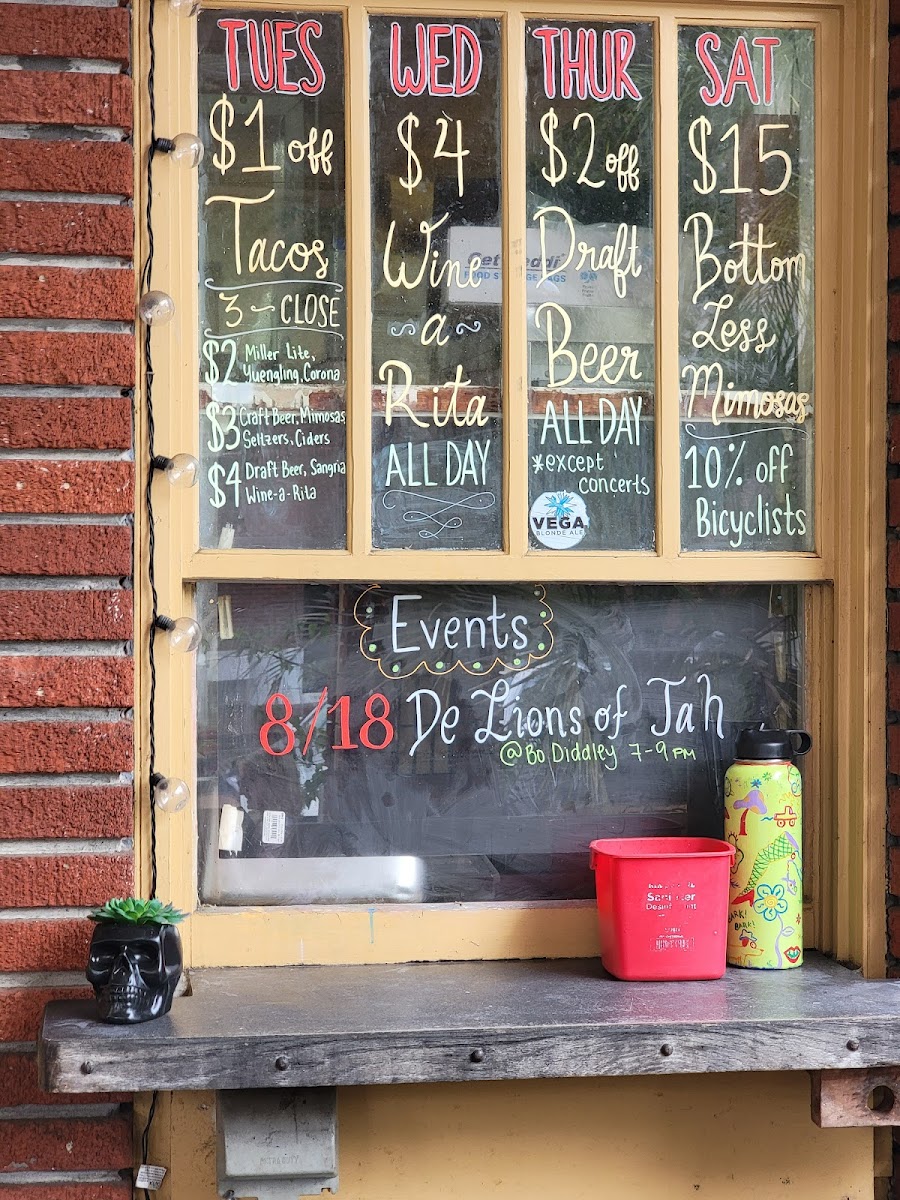 TUES
$1 off
Tacos
3 - CLOSE
$2 Miller Lite,
Yuengling, Corona
$3 Craft Beer, Mimosas,
Seltzers, Ciders
$4 Draft Beer, Sangria
Wine-a-Rita
WED
$4
Wine
~a~
Rita
ALL DAY
THUR
$2 off
Draft
Beer
ALL DAY
*except
concerts
VEGA
BLONDE ALE
SAT
$15
Bottom
Less
Mimosas
10% off
Bicyclists
Events
8/18 De Lions of Jah
@Bo Diddley 7-9PM
BARK!
BARK!